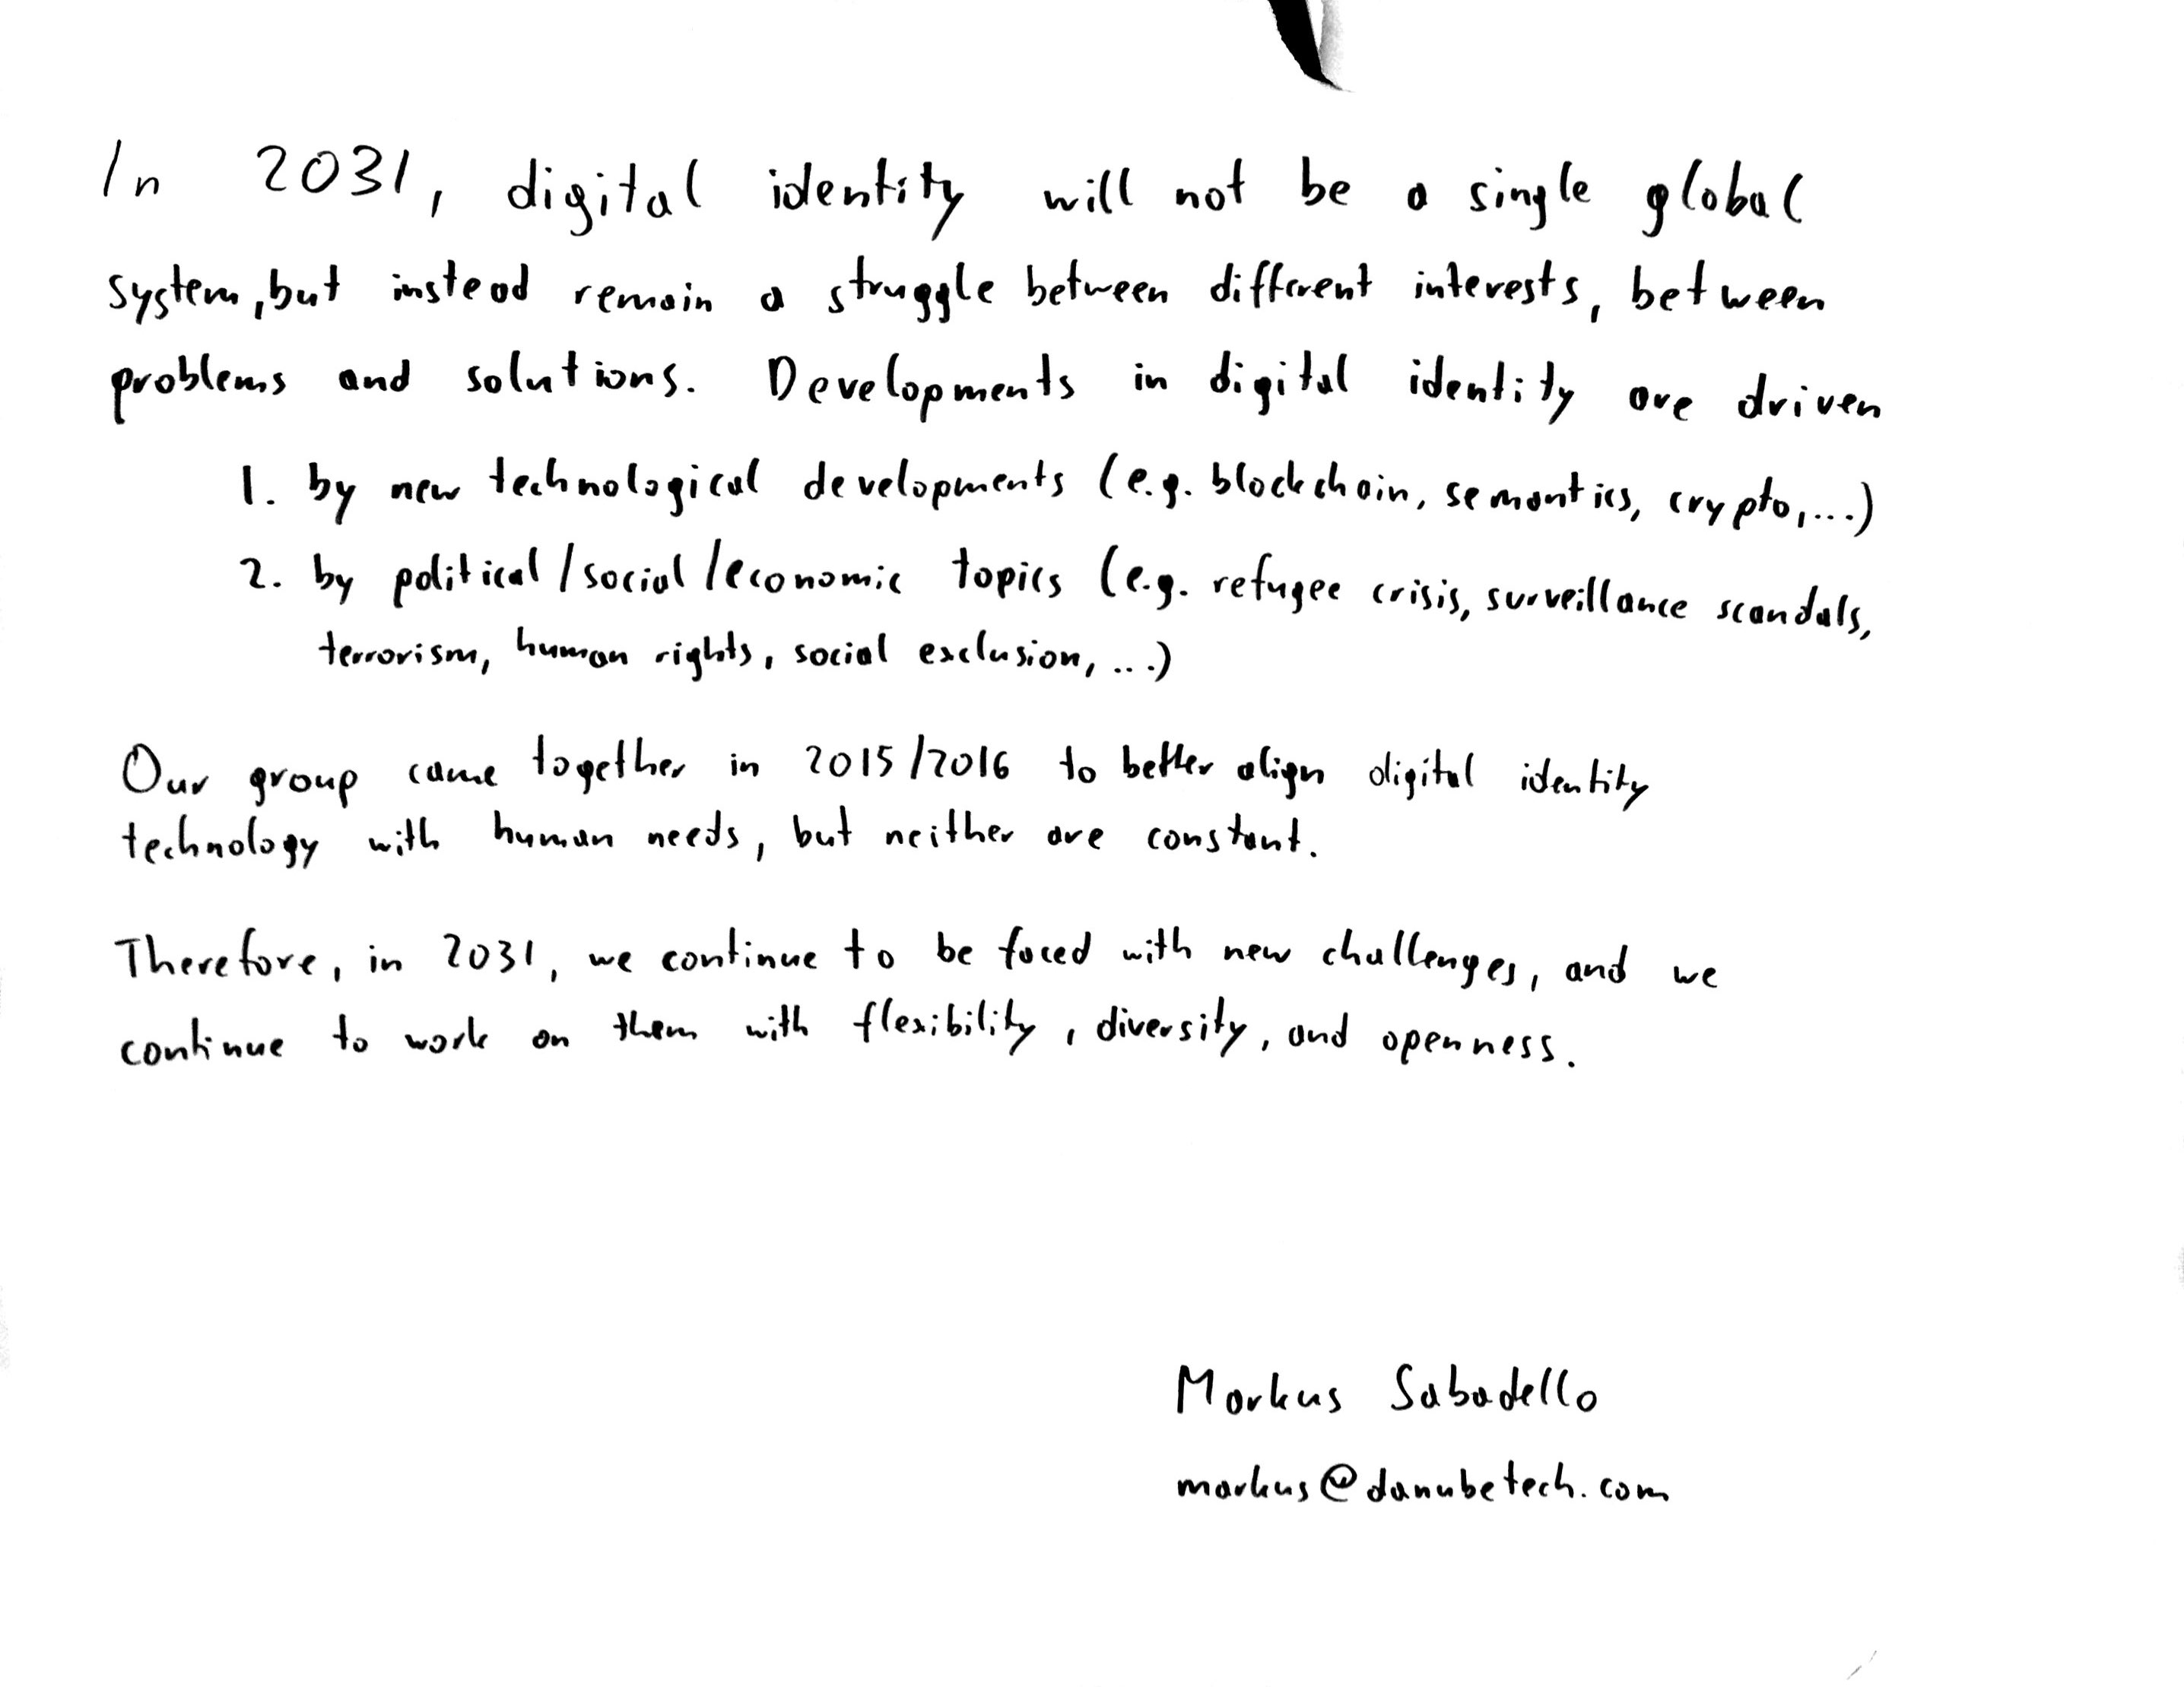 In 2031, digital identity will not be a single global
system, but instead remain a struggle between different interests, between
problems and solutions. Developments in digital identity are driven
1. by new technological developments (e.g. blockchain, semantics, crypto, ...)
2. by political/social/economic topics (e.g. refugee crisis, surveillance scandals,
terrorism, human rights, social exclusion, ...)
Our group came together in 2015/2016 to better align digital identity
technology with human needs, but neither are constant.
Therefore, in 2031, we continue to be faced with new challenges, and we
continue to work on them with flexibility, diversity, and openness.
Markus Sabadello
markus@danubetech.com